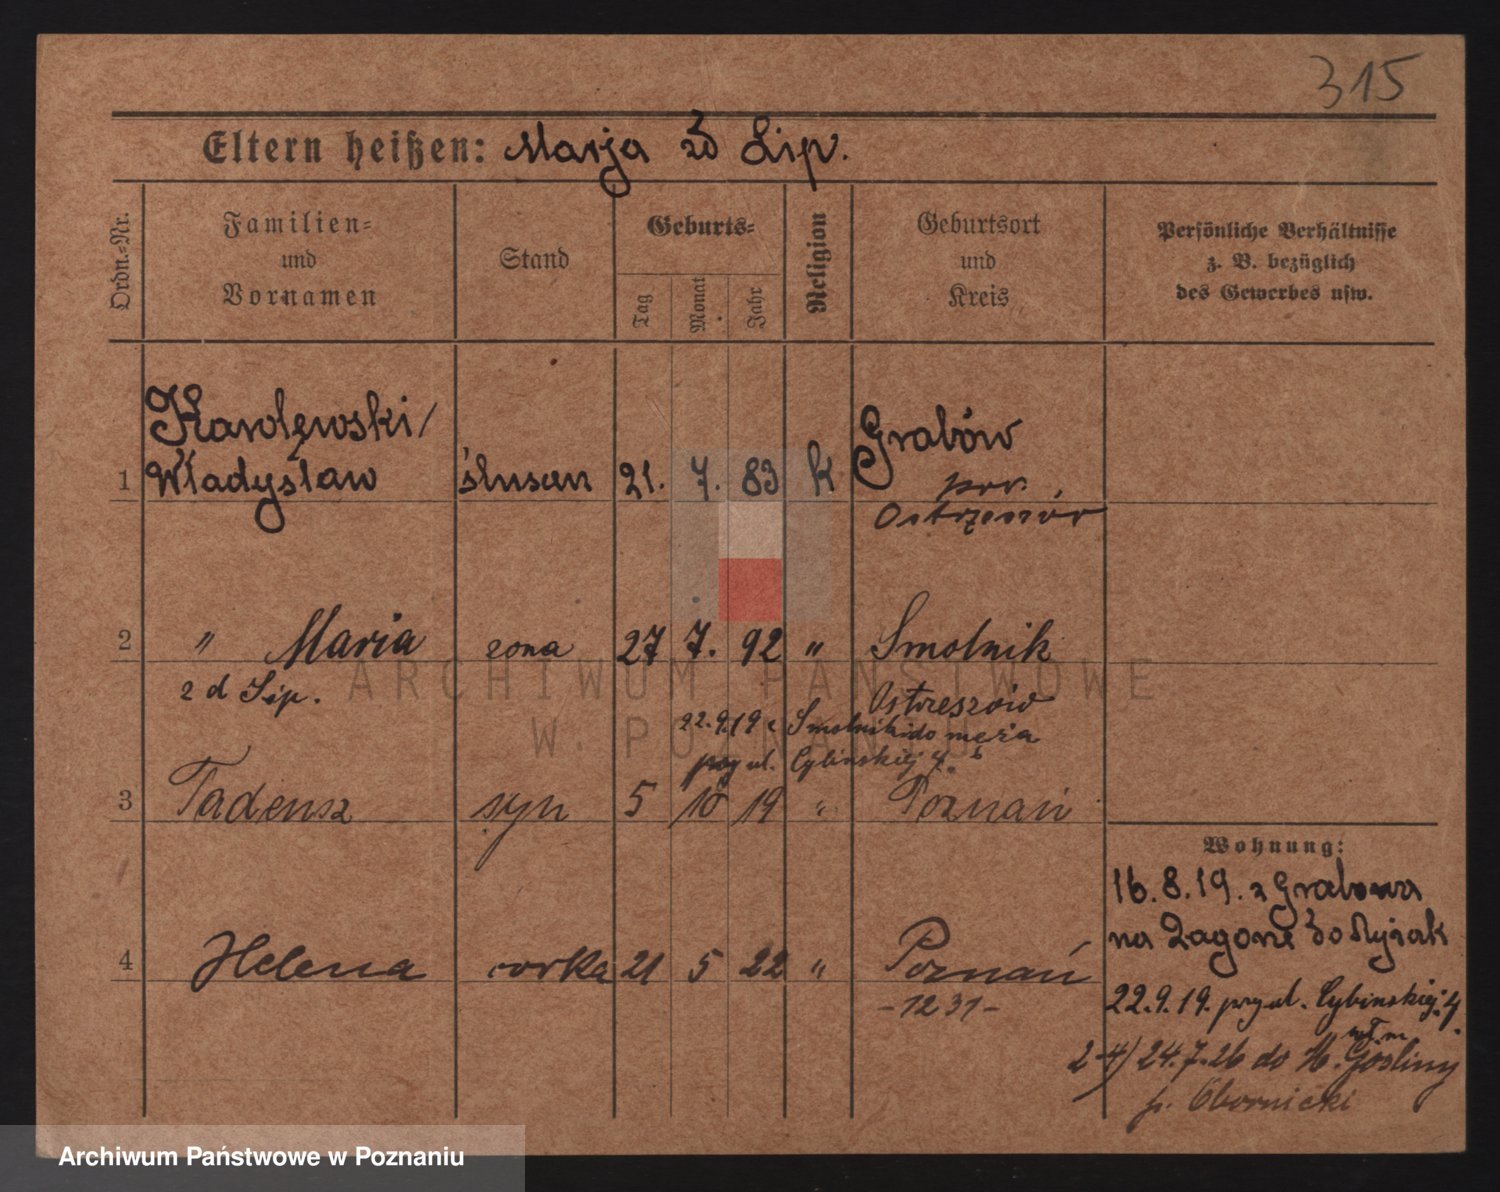 315
Eltern heißen: Marja zd Lip.
Ordn.-Nr.
Familien-
und
Vornamen
Stand
Geburts-
Tag
Monat
Jahr
Religion
Geburtsort
und
Kreis
Persönliche Verhältnisse
z. B. bezüglich
des Gewerbes usw.
Karolewski/
1 Władysław ślusarz 21. 7. 83 k Grabów
pow.
Ostrzeszów
2 " Maria zona 27 7. 92 " Smolnik
z d Lip. Ostrzeszów
22.9.19 z Smolnik do męża
przy ul. Cybińskiej 4.
3 Tadeusz syn 5 10 19 " Poznań
Wohnung:
16.8.19. z Grabowa
na Zagorze do
4 Helena corka 21 5 22 " Poznań
-1231-
22.9.19. przy ul. Cybinskiej 4.
2-4) 24.7.26 do M. Gosliny
p. Obornicki
ARCHIWUM PAŃSTWOWE
W POZNANIU
Archiwum Państwowe w Poznaniu